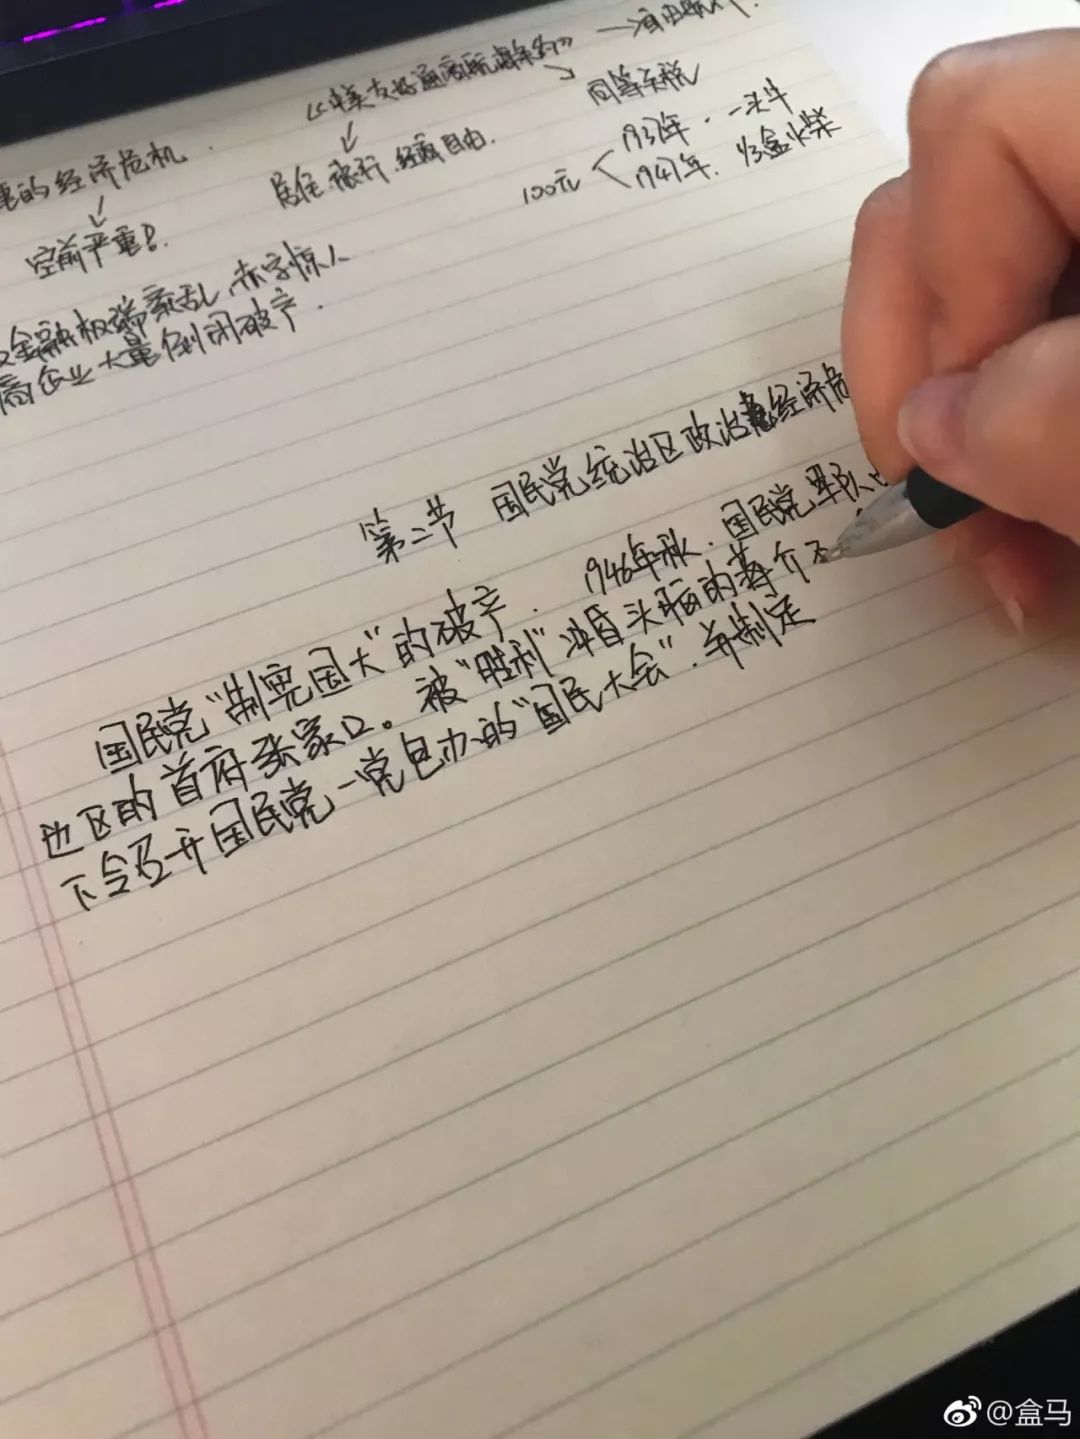 《中美友好通商航海条约》→自由
↓ ↘同等关税
居住.旅行.经商自由.
100元<1937年.一头牛
1947年.1/3盒火柴
的经济危机
↓
空前严重!
金融极端紊乱,赤字惊人
商企业大量倒闭破产.
第二节 国民党统治区政治经济危
国民党"制宪国大"的破产. 1946年秋.国民党军队
边区的首府张家口。被"胜利"冲昏头脑的蒋介
下令召开国民党一党包办的"国民大会".并制定
@盒马